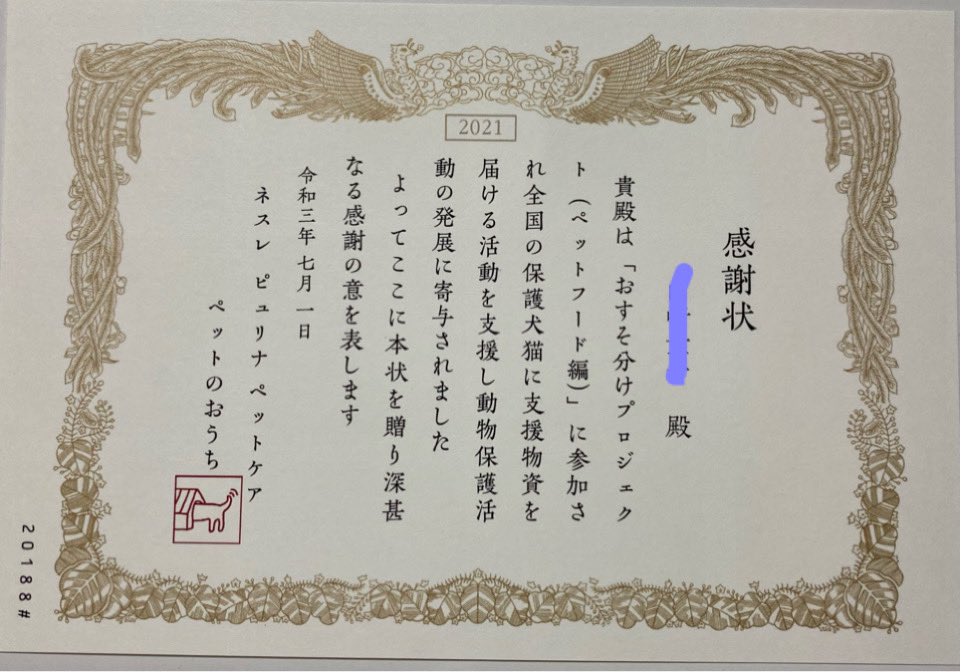 2021
感謝状
殿
貴殿は「おすそ分けプロジェク
ト(ペットフード編)」に参加さ
れ全国の保護犬猫に支援物資を
届ける活動を支援し動物保護活
動の発展に寄与されました
よってここに本状を贈り深甚
なる感謝の意を表します
令和三年七月一日
ネスレ ピュリナ ペットケア
ペットのおうち
20188#